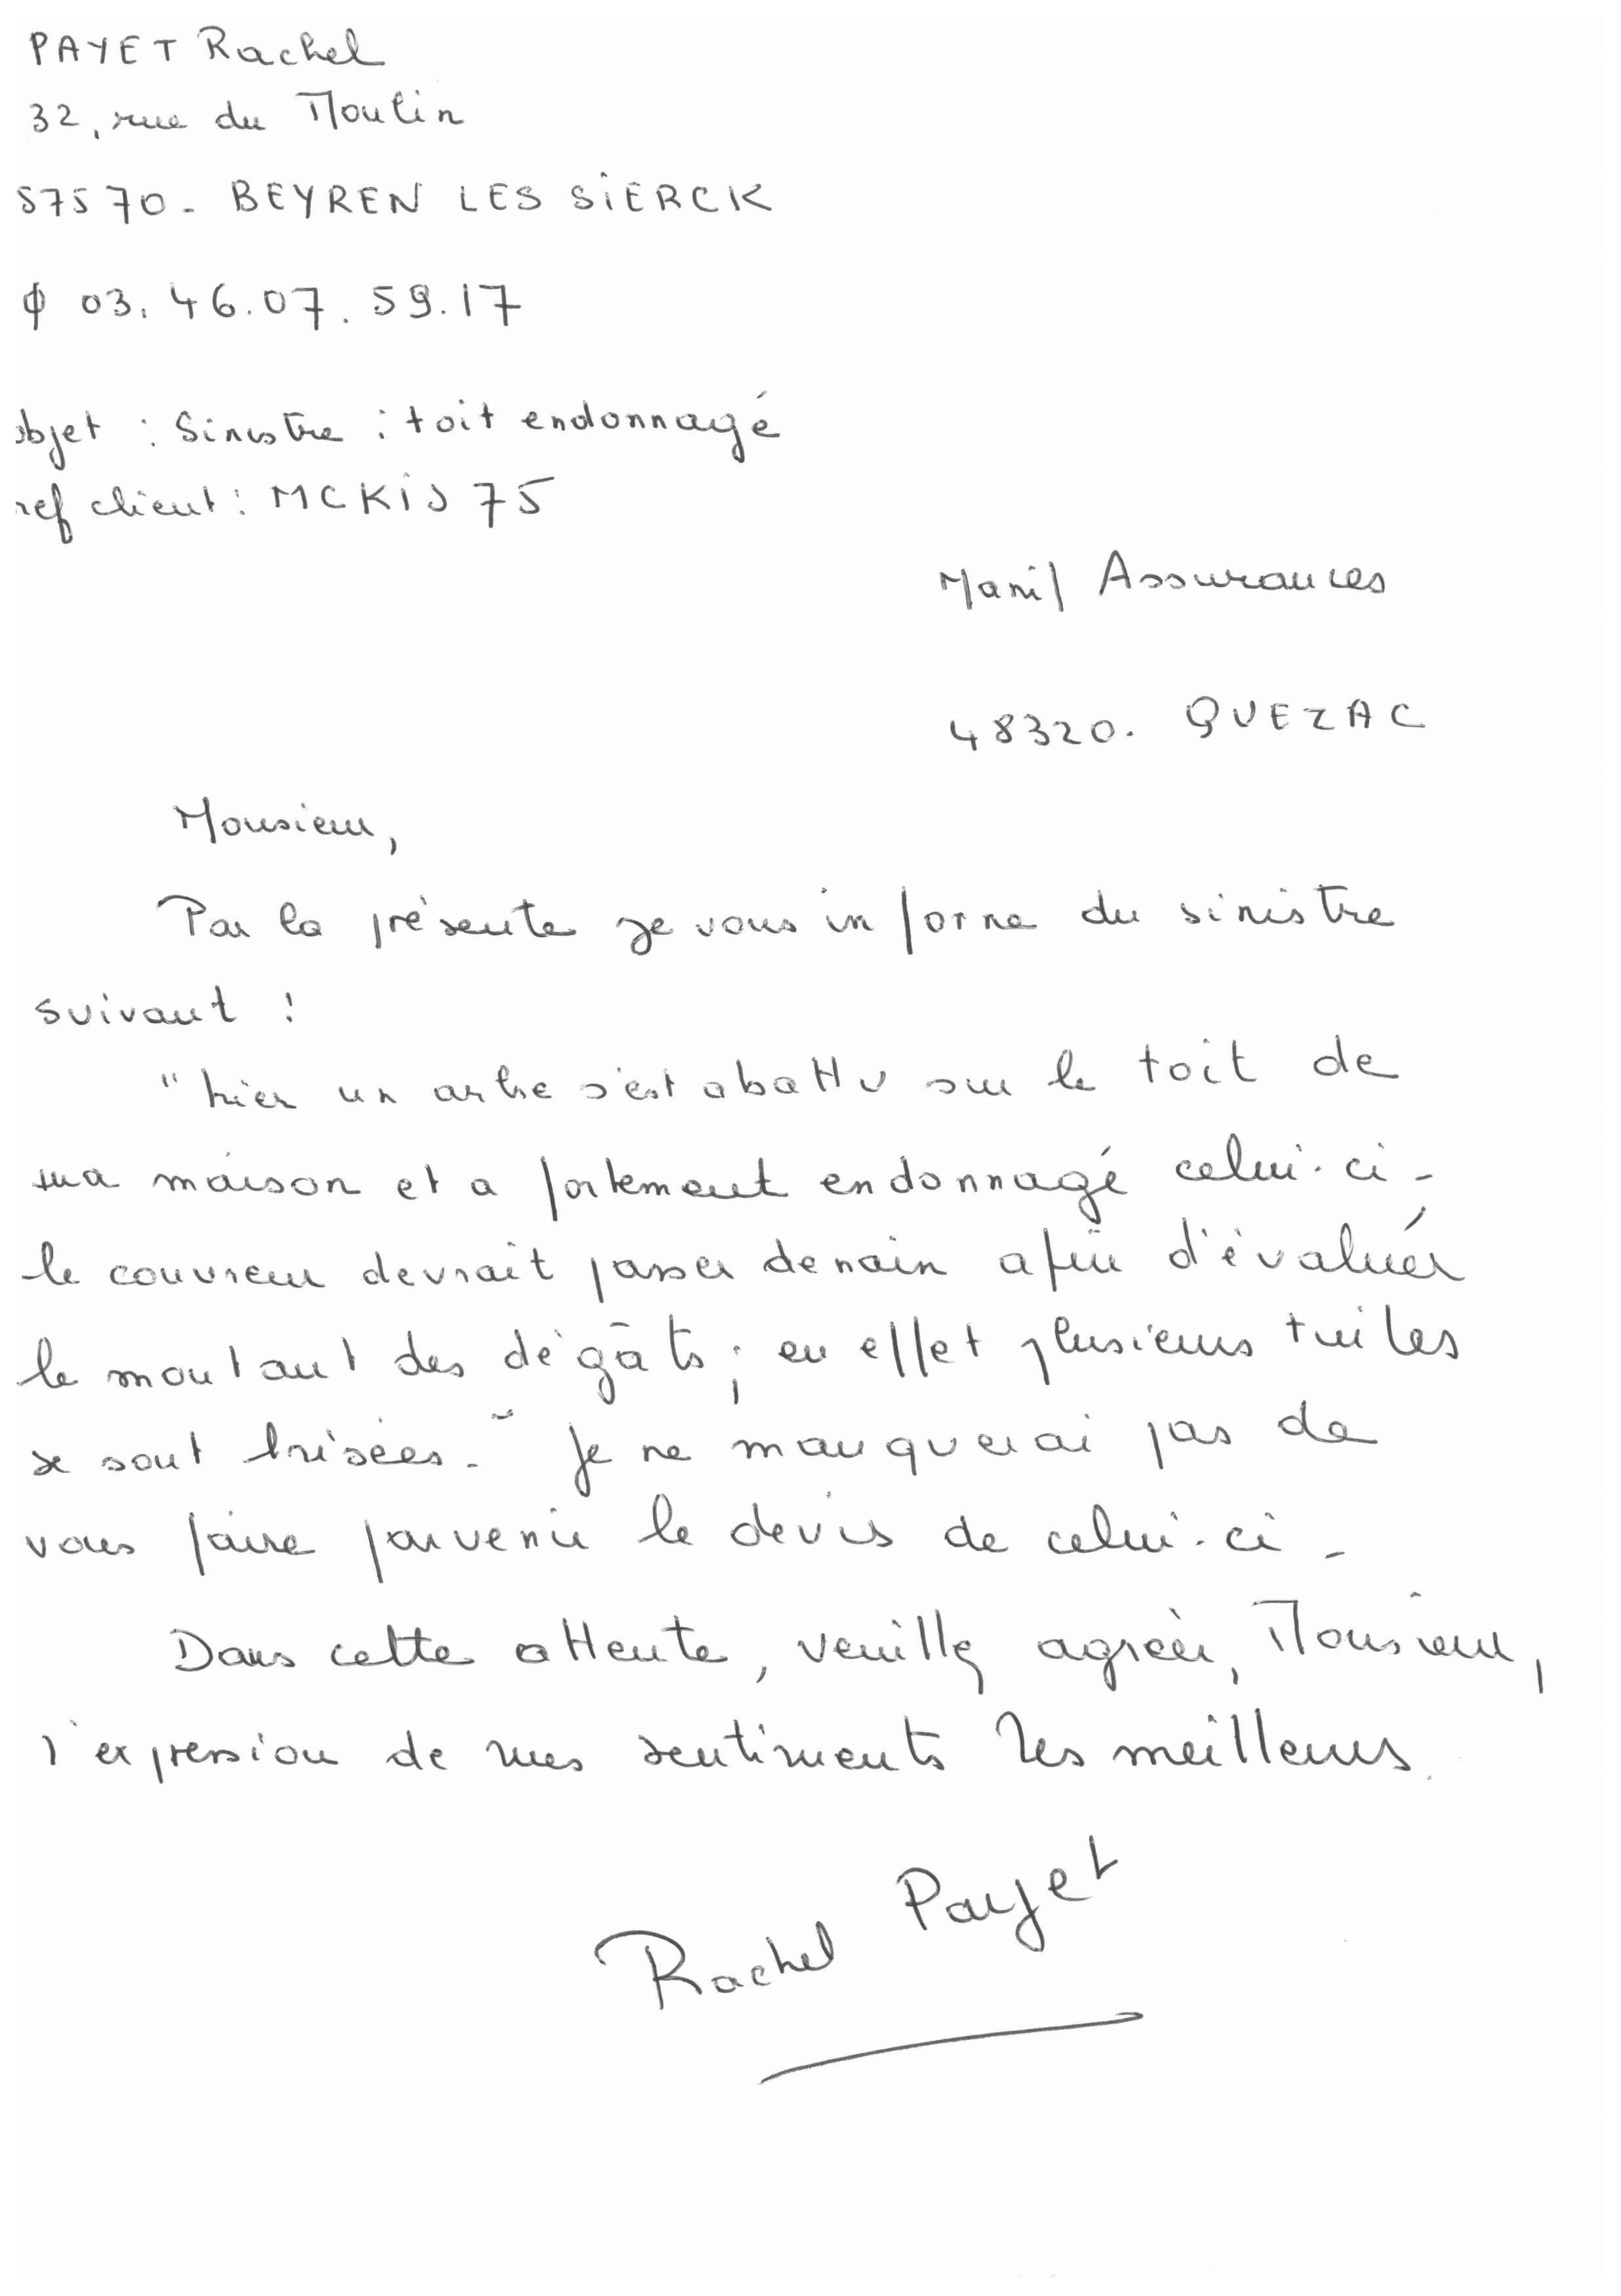 PAYET Rachel
32, rue du Moulin
57570. BEYREN LES SIERCK
φ 03.46.07.59.17
objet : Sinistre : toit endommagé
ref client : MCKIJ 75
Manif Assurances
48320. QUEZAC
Monsieur,
Par la présente je vous informe du sinistre
suivant :
"hier un arbre s'est abattu sur le toit de
ma maison et a fortement endommagé celui-ci.
le couvreur devrait passer demain afin d'évaluer
le montant des dégâts ; en effet plusieurs tuiles
se sont brisées." Je ne manquerai pas de
vous faire parvenir le devis de celui-ci.
Dans cette attente, veuillez agréer, Monsieur,
l'expression de mes sentiments les meilleurs.
Rachel Payet